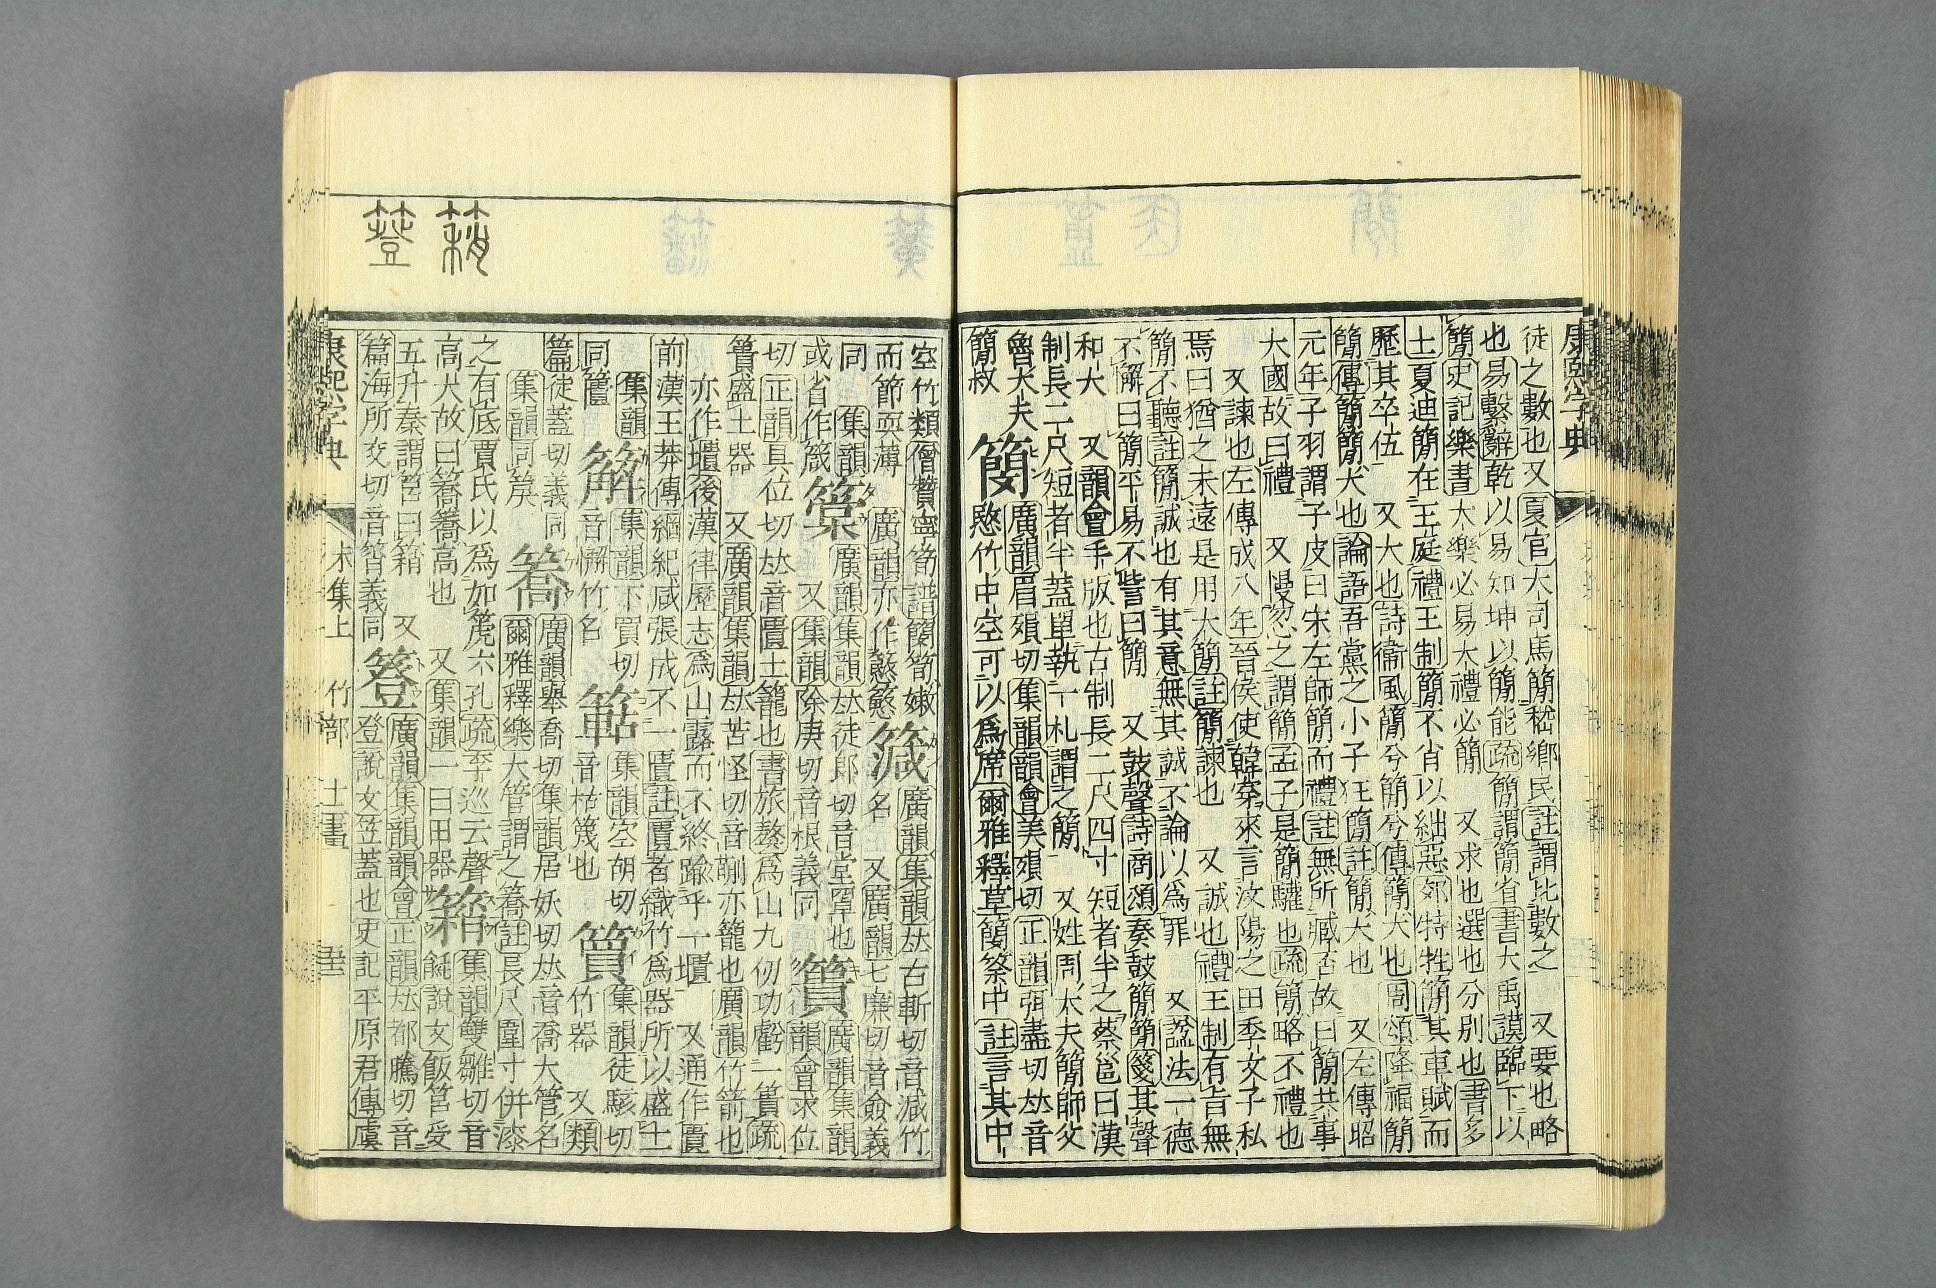 康熙字典
徒之數也又夏官大司馬簡稽鄉民註謂比數之　又要也略
也易繫辭乾以易知坤以簡能疏簡謂簡省書大禹謨臨下以
簡史記樂書大樂必易大禮必簡　又求也選也分別也書多
士夏迪簡在王庭禮王制簡不肖以絀惡郊特牲簡其車賦而
歷其卒伍　又大也詩衞風簡兮簡兮傳簡大也周頌降福簡
簡傳簡簡大也論語吾黨之小子狂簡註簡大也　又左傳昭
元年子羽謂子皮曰宋左師簡而禮註無所臧否故曰簡共事
大國故曰禮　又慢忽之謂簡孟子是簡驩也疏簡略不禮也
又諫也左傳成八年晉侯使韓穿來言汶陽之田季文子私
焉曰猶之未遠是用大簡註簡諫也　又誠也禮王制有旨無
簡不聽註簡誠也有其意無其誠不論以爲罪　又諡法一德
不解曰簡平易不訾曰簡　又鼓聲詩商頌奏鼓簡簡箋其聲
和大　又韻會手版也古制長二尺四寸短者半之蔡邕曰漢
制長二尺短者半蓋單執一札謂之簡　又姓周大夫簡師父
魯大夫
簡叔　䉎廣韻眉殞切集韻韻會美殞切正韻弭盡切𠀤音
愍竹中空可以爲席爾雅釋草䉎筡中註言其中
空竹類僧贊寧筍譜䉎筍嫩
而節䎡薄　廣韻亦作慜䉎　䈤廣韻集韻𠀤古斬切音減竹
同　集韻　名　又廣韻七廉切音僉義
或省作箴　䉎廣韻集韻𠀤徒郎切音堂䈜也
又集韻除庚切音棖義同　簣廣韻集韻
切正韻具位切𠀤音匱土籠也書旅獒爲山九仞功虧一簣疏
簣盛土器　又廣韻集韻𠀤苦怪切音蒯亦籠也廣韻竹箭也
亦作墤後漢律歷志爲山露而不終踰乎一墤　又通作匱
前漢王莽傳綱紀咸張成不一匱註匱者織竹爲器所以盛土
集韻　同簠
簬　集韻下買切音懈竹名　集韻空胡切音枯篾也
竹器　集韻徒駭切　又類
篇徒蓋切義同
集韻同筊　簥廣韻舉喬切集韻居妖切𠀤音喬大管名
爾雅釋樂大管謂之簥註長尺圍寸併漆
之有底賈氏以爲如篪六孔疏李巡云聲
高大故曰簥簥高也　又集韻一曰田器　䈰集韻雙雛切音
毹說文飯筥受
五升秦謂筥曰䈰　又
篇海所交切音筲義同　簦廣韻集韻韻會正韻𠀤都騰切音
登說文笠蓋也史記平原君傳虞
康熙字典　未集上　竹部　十二畫